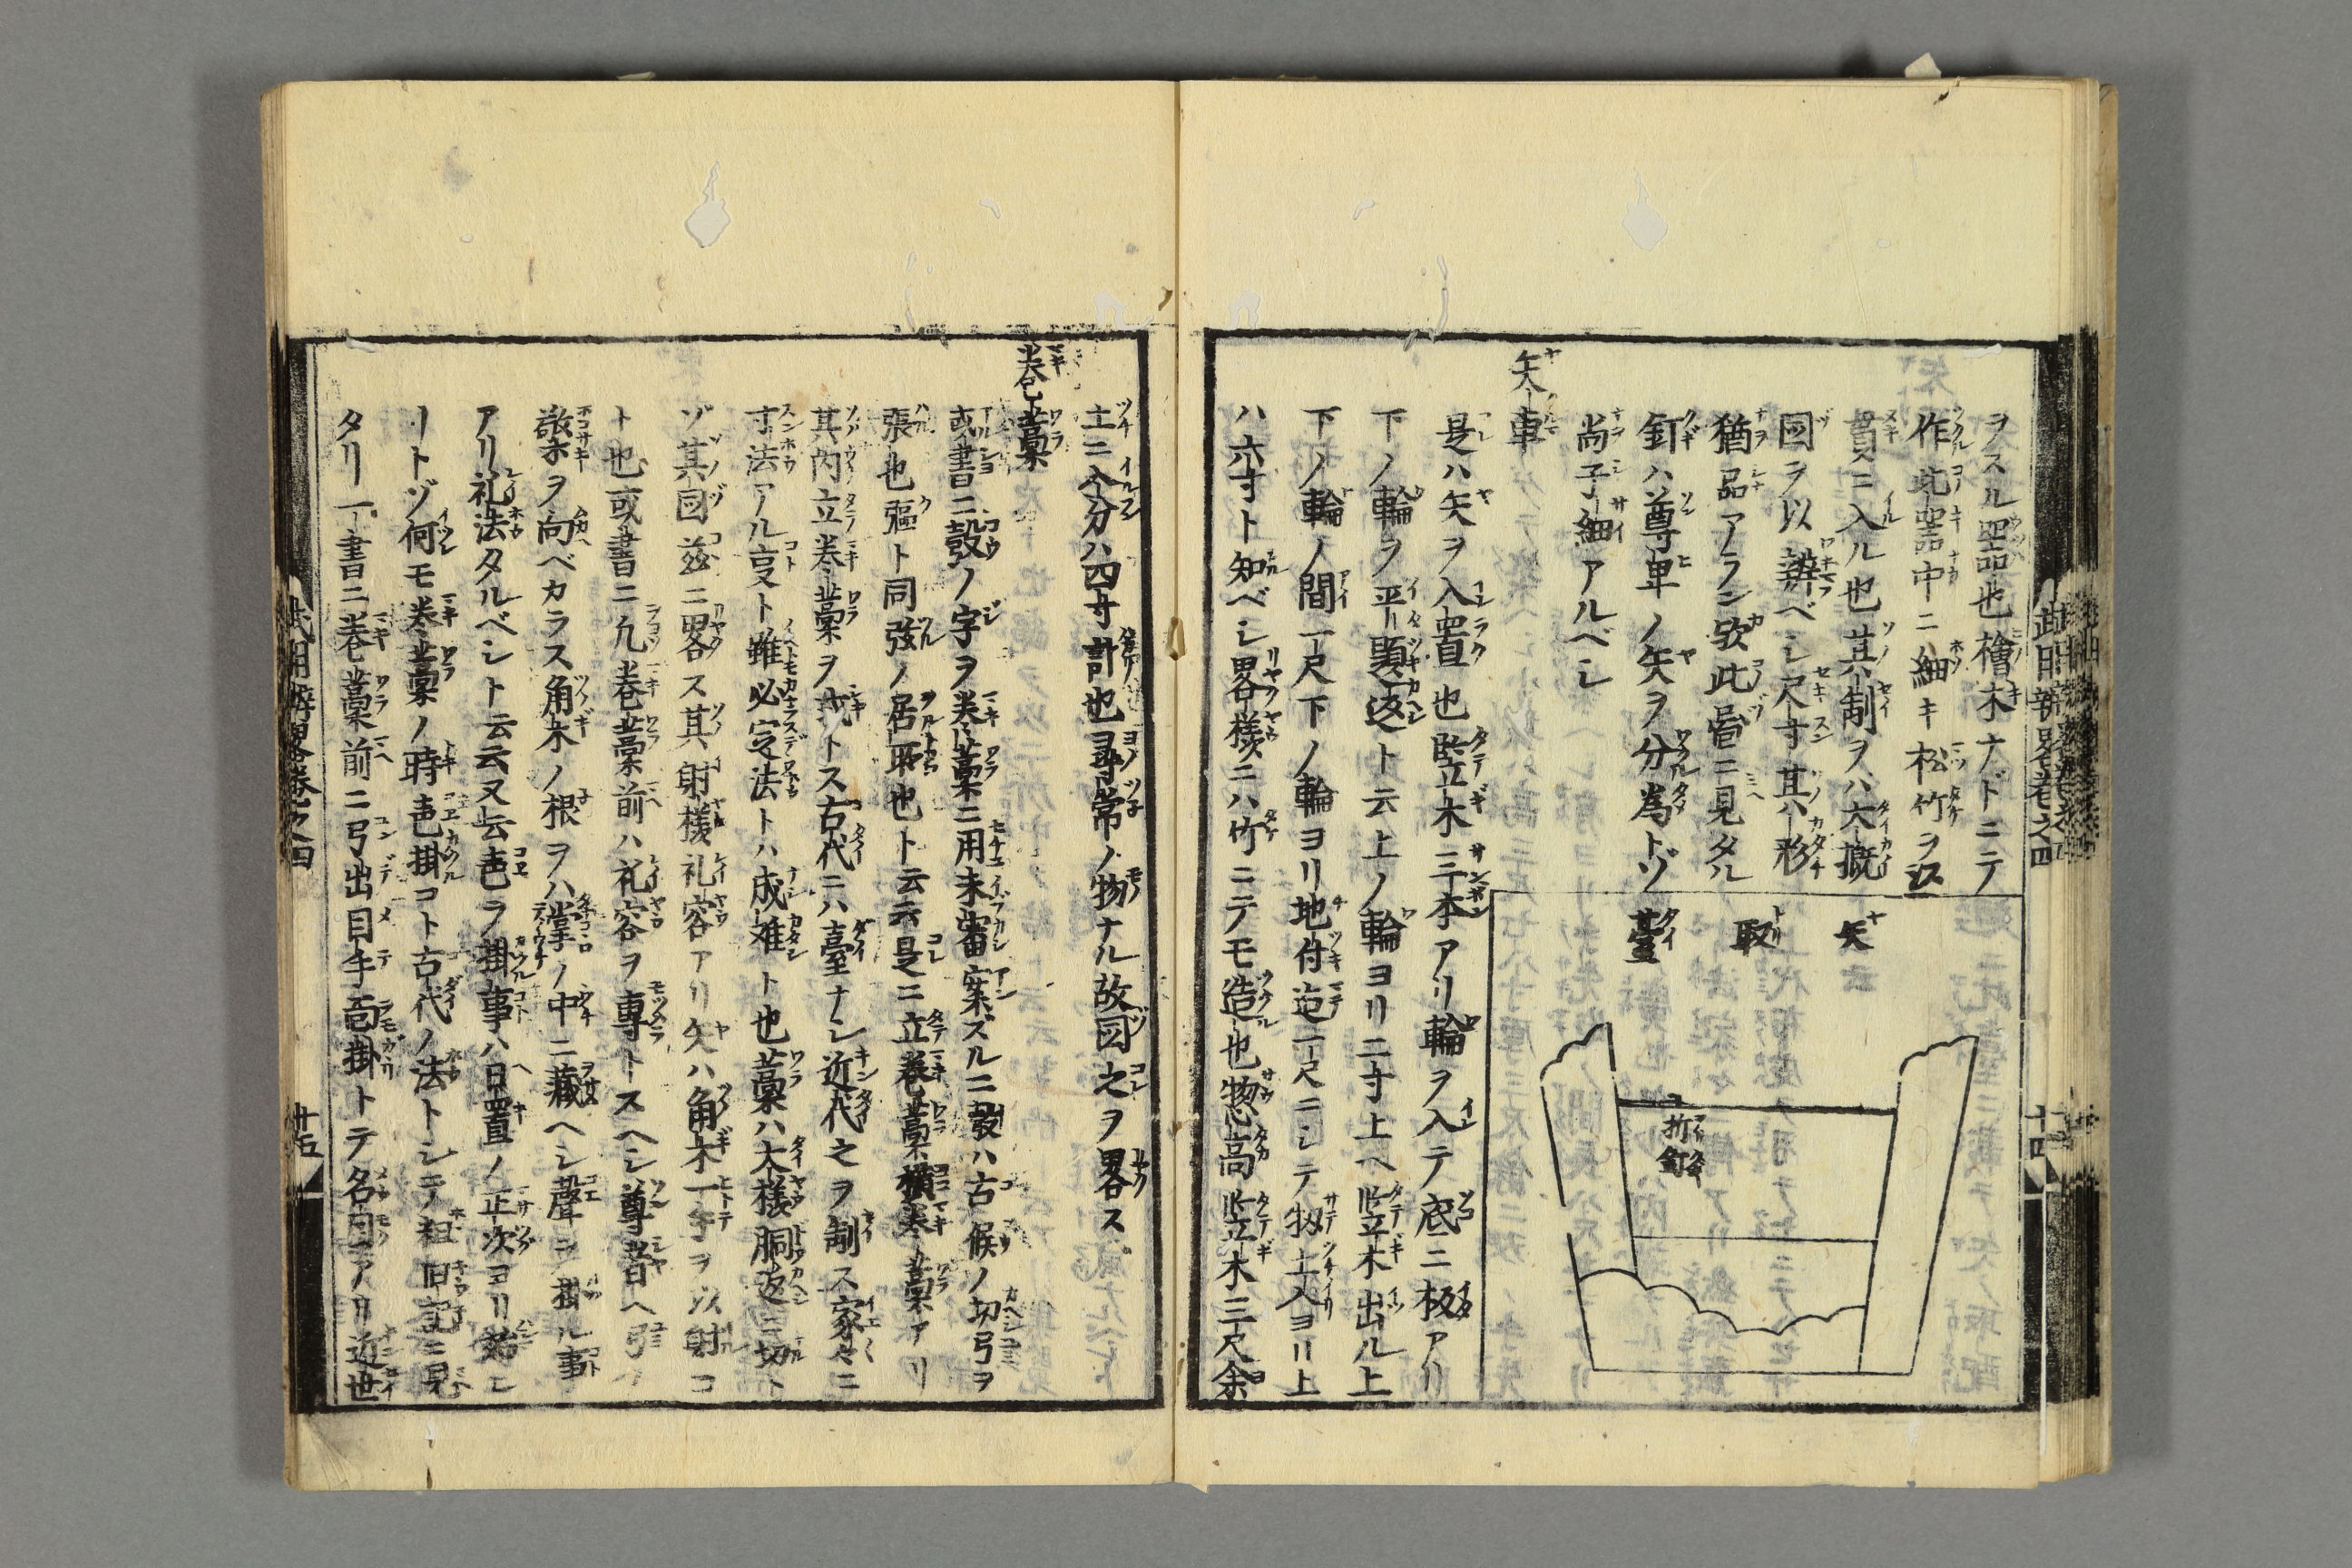 ヲスル噐也檜木ナドニテ
作此噐中ニ細キ松竹ヲ
貫ニ入ル也其制ヲハ大概
圖ヲ以辨ベシ尺寸其形
猶品アラン歟此ニ見タル
釘ハ尊卑ノ矢ヲ分為トゾ
尚子細アルベシ
矢取臺
折釘
矢車
是ハ矢ヲ入置也竪木三本アリ輪ヲ入テ底ニ板アリ
下ノ輪ヲ平題返ト云上ノ輪ヨリ二寸上ヘ竪木出ル上
下ノ輪ノ間一尺下ノ輪ヨリ地付迠一尺ニシテ扨土入ヨリ上
ハ六寸ト知ベシ畧様ニハ竹ニテモ造也惣高竪木三尺余
土ニ入分ハ四寸計也尋常ノ物ナル故圖之ヲ畧ス
巻藁
或書ニ彀ノ字ヲ巻藁ニ用未審案ズルニ彀ハ古候ノ切弓ヲ
張也彄ト同弦ノ居所也ト云云是ニ立巻藁横巻藁アリ
其内立巻藁ヲ式トス古代ニハ臺ナシ近代之ヲ制ス家々ニ
寸法アル亨ト雖必定法トハ成難ト也藁ハ大様胴返ニ切ト
ゾ其圖茲ニ畧ス其射様礼容アリ矢ハ角木一手ヲ以射コ
ト也或書ニ凢巻藁前ハ礼容ヲ専トスヘシ尊者ヘ弓
ヲ向ベカラス角木ノ根ヲハ掌ノ中ニ藏ヘシ聲ニ掛ル事
アリ礼法タルベシト云云又云声ヲ掛事ハ日置ノ正次ヨリ始シ
ートゾ何モ巻藁ノ時声掛コト古代ノ法トシテ粗旧記ニ見
タリ一書ニ巻藁前ニ弓出目手掛トテ名目アリ近世
武用辨畧巻之四
十四
十五